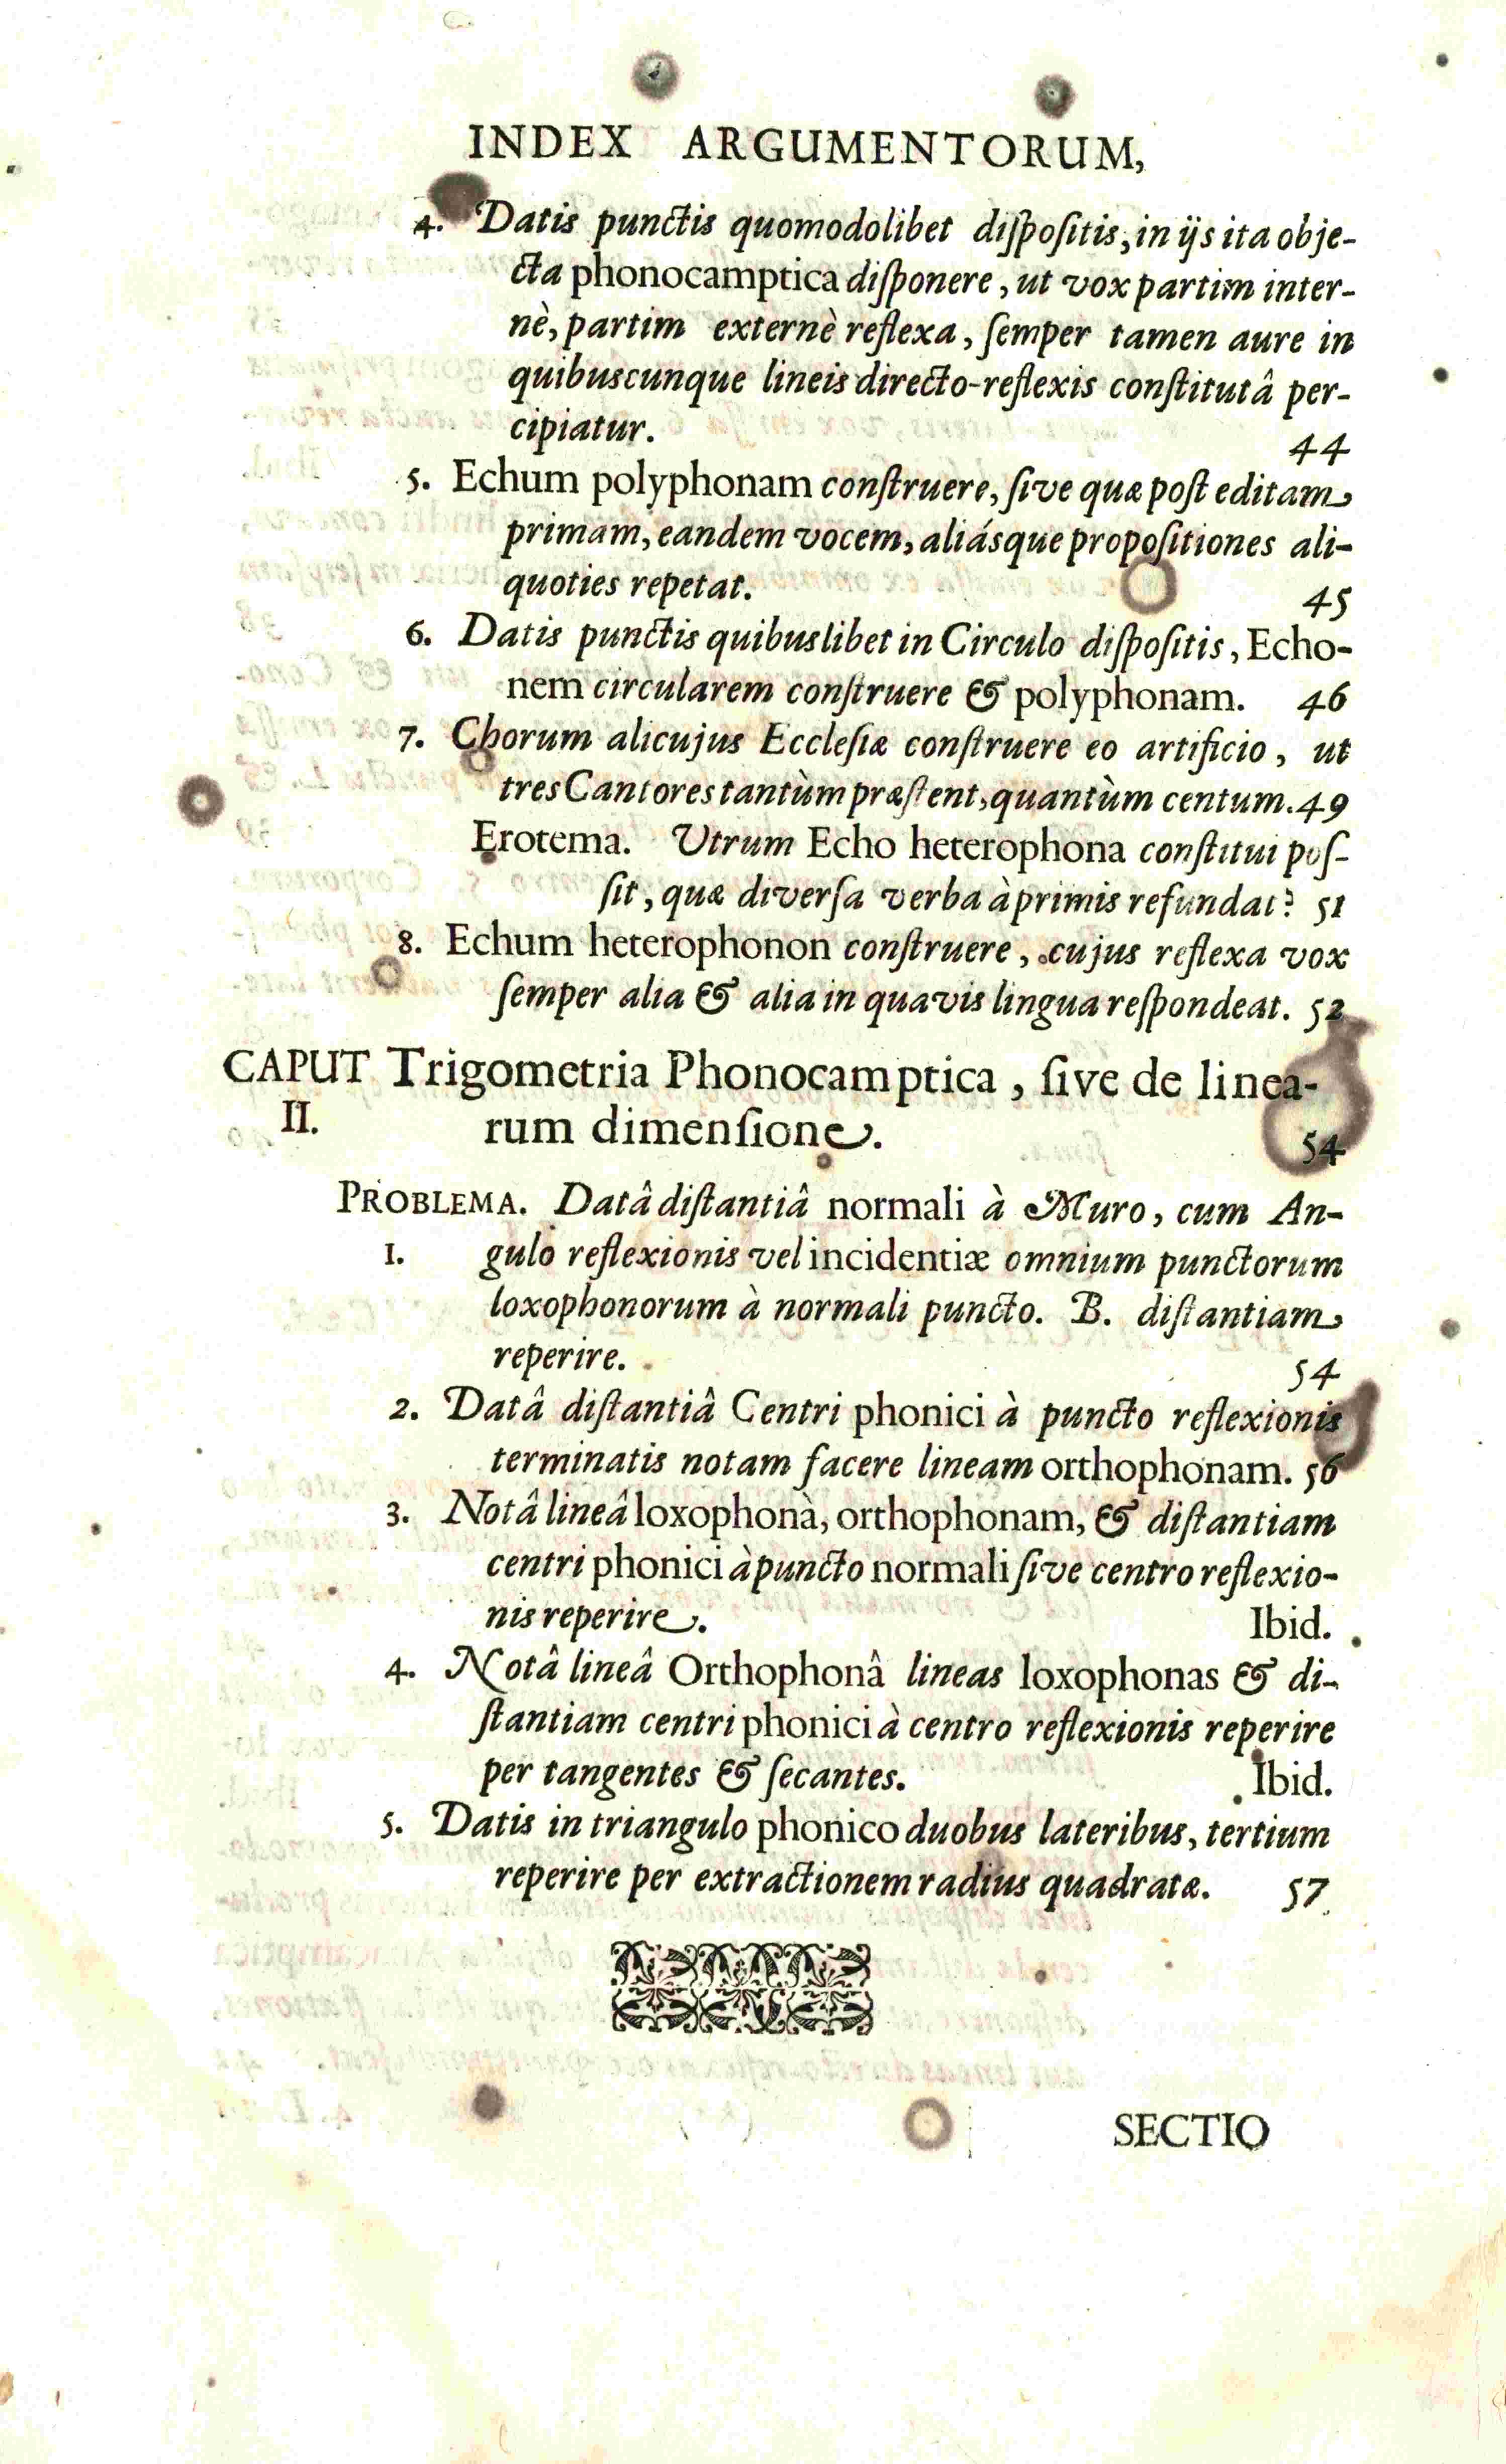 INDEX ARGUMENTORUM,
4. Datis punctis quomodolibet diſpoſitis, in ijs ita obje-
cta phonocamptica diſponere, ut vox partim inter-
nè, partim externè reflexa, ſemper tamen aure in
quibuscunque lineis directo-reflexis conſtitutâ per-
cipiatur. 44
5. Echum polyphonam conſtruere, ſive quæ poſt editam
primam, eandem vocem, aliásque propoſitiones ali-
quoties repetat. 45
6. Datis punctis quibuslibet in Circulo diſpoſitis, Echo-
nem circularem conſtruere & polyphonam. 46
7. Chorum alicujus Eccleſiæ conſtruere eo artificio, ut
tres Cantores tantùm præſtent, quantùm centum. 49
Erotema. Utrum Echo heterophona conſtitui poſ-
ſit, quæ diverſa verba à primis refundat? 51
8. Echum heterophonon conſtruere, cujus reflexa vox
ſemper alia & alia in quavis lingua reſpondeat. 52
CAPUT Trigometria Phonocamptica, ſive de linea-
II. rum dimenſione. 54
PROBLEMA. Datâ diſtantiâ normali à Muro, cum An-
1. gulo reflexionis vel incidentiæ omnium punctorum
loxophonorum à normali puncto. B. diſtantiam
reperire. 54
2. Datâ diſtantiâ Centri phonici à puncto reflexionis
terminatis notam facere lineam orthophonam. 56
3. Notâ lineâ loxophonà, orthophonam, & diſtantiam
centri phonici à puncto normali ſive centro reflexio-
nis reperire. Ibid.
4. Notâ lineâ Orthophonâ lineas loxophonas & di-
ſtantiam centri phonici à centro reflexionis reperire
per tangentes & ſecantes. Ibid.
5. Datis in triangulo phonico duobus lateribus, tertium
reperire per extractionem radius quadratæ. 57
SECTIO